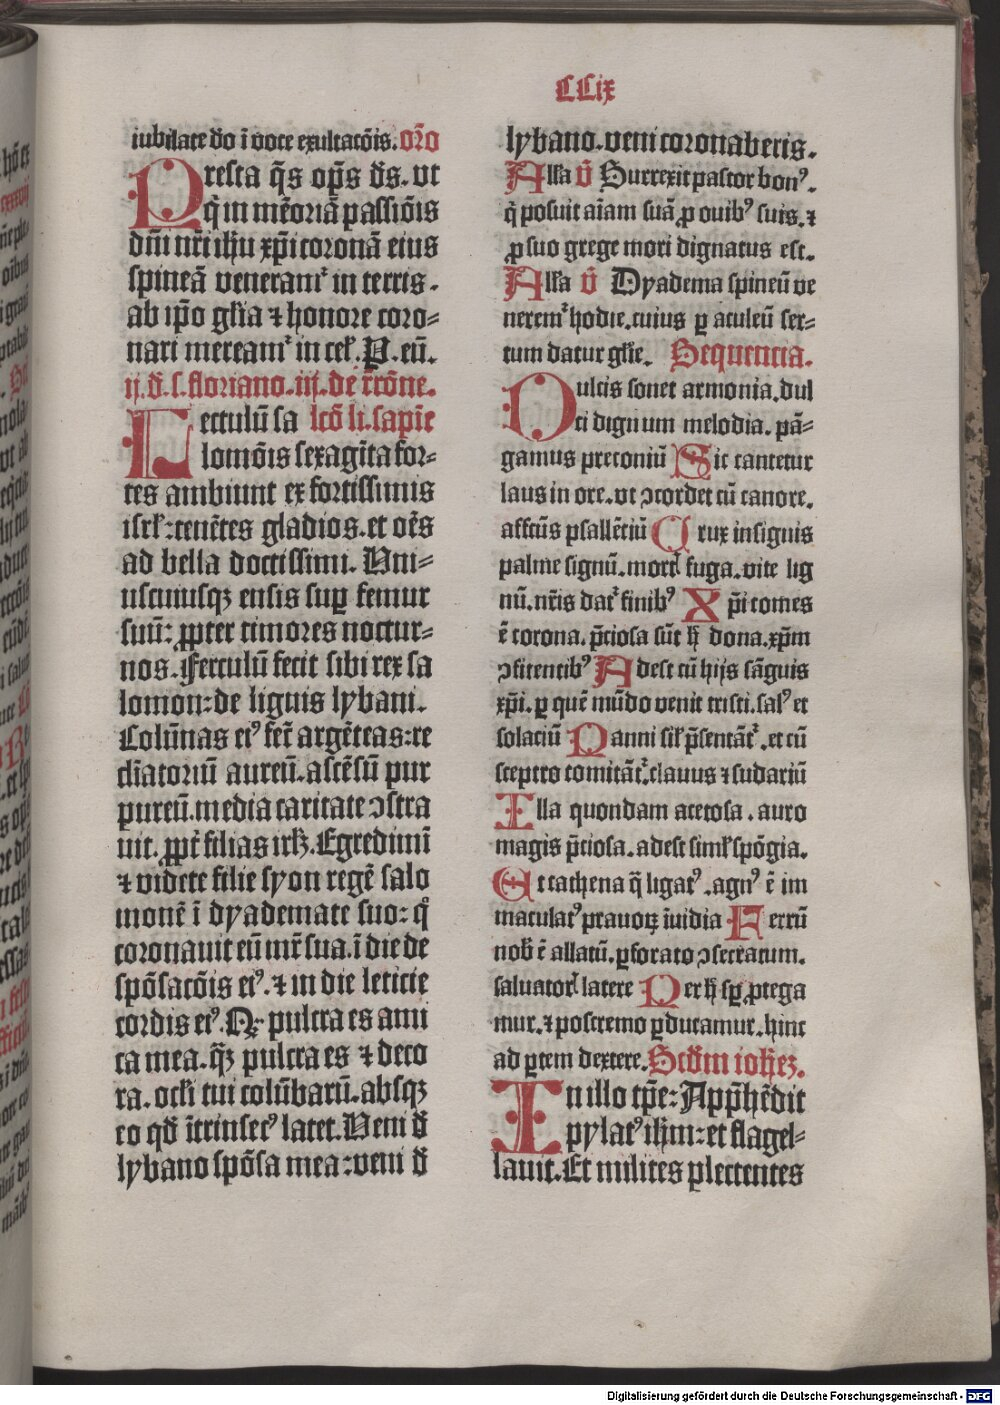 CCix
iubilate dō ī voce exultatōis. orō
Presta q̄s op̄s d̄s. vt
q̄ in mēoriā passiōis
dn̄i nr̄i ih̄u xp̄i coronā eius
spineā veneramꝰ in terris.
ab ip̄o gl̄ia ⁊ honore coro-
nari mereamꝰ in cel̄. P. eū.
ij. d̄. s. floriano. iij. de c̄rōne.
Lectulū sa lcō li. sapīe
lomōis sexagīta for-
tes ambiunt ex fortissimis
isrl̄: tenētes gladios. et oēs
ad bella doctissimi. Vni-
uscuiusqꝫ ensis suꝑ femur
suū: ꝓpter timores noctur-
nos. Ferculū fecit sibi rex sa
lomon: de lignis lybani.
Colūnas eiꝰ fec̄ argēteas: re
cl̄iatoriū aureū. ascēsū pur
pureū. media caritate ↄstra
uit. ꝓpt̄ filias irl̄ꝫ. Egredimī
⁊ videte filie syon regē salo
monē ī dyademate suo: q̊
coronauit eū mr̄ sua. ī die de
spōsatōis eiꝰ. ⁊ in die leticie
cordis eiꝰ. Qꝫ pulcra es ami
ca mea. q̄ꝫ pulcra es ⁊ deco
ra. ocl̄i tui colūbarū. absqꝫ
eo qd̄ ītrinsecꝰ latet. Veni d̄
lybano spōsa mea: veni d̄
lybano. veni coronaberis.
All̄a v̄ Surrexit pastor bonꝰ.
q̄ posuit aīam suā ꝓ ouibꝰ suis. ⁊
ꝓ suo grege mori dignatus est.
All̄a v̄ Dyadema spineū ve
neremꝰ hodie. cuius ꝑ aculeū ser-
tum datur gl̄ie. Sequentia.
Dulcis sonet armonia. dul
ci dignum melodia. pā-
gamus preconiū Sic cantetur
laus in ore. vt ↄcordet cū canore.
affc̄us psallētiū Crux insignis
palme signū. mort̄ fuga. vite lig
nū. nr̄is dat̄ finibꝰ Xp̄i comes
ē corona. p̄ciosa sūt h̄ dona. xp̄m
ↄfitentibꝰ Adest cū hijs sāguis
xp̄i. ꝑ quē mūdo venit tristi. salꝰ et
solaciū Panni sil̄ p̄sentāt̄. et cū
sceptro comitāt̄. clauus ⁊ sudariū
Illa quondam acetosa. auro
magis p̄ciosa. adest siml̄ spōgia.
Et cathena q̄ ligatꝰ. agnꝰ ē im
maculatꝰ prauoꝝ īuidia Ferrū
nob̄ ē allatū. ꝑforato ↄsecratum.
saluator̄ latere Per h̄ sꝑ ꝓtega
mur. ⁊ postremo ꝑducamur. hinc
ad ꝑtem dextere. Scd̄m ioh̄eꝫ.
In illo tp̄e: App̄hēdit
pylatꝰ ih̄m: et flagel-
lauit. Et milites plectentes
Digitalisierung gefördert durch die Deutsche Forschungsgemeinschaft - DFG